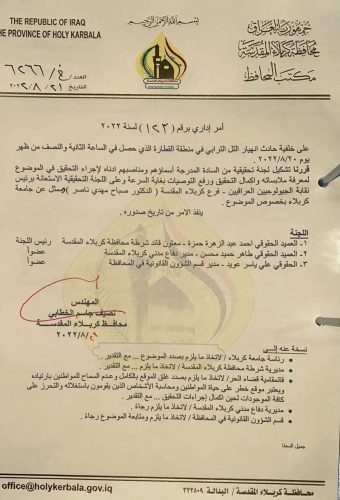 بسم الله الرحمن الرحيم
THE REPUBLIC OF IRAQ
THE PROVINCE OF HOLY KARBALA
جمهورية العراق
محافظة كربلاء المقدسة
مكتب المحافظ
العدد / غ/ ٦٢٦٦
٢٠٢٢/٨/٢١
أمر إداري برقم (١٢٣) لسنة ٢٠٢٢
على خلفية حادث انهيار التل الترابي في منطقة القطارة الذي حصل في الساعة الثانية والنصف من ظهر
يوم ٢٠٢٢/٨/٢٠.
قررنا تشكيل لجنة تحقيقية من السادة المدرجة أسماؤهم ومناصبهم أدناه لإجراء التحقيق في الموضوع
لمعرفة ملابساته وإكمال التحقيق ورفع التوصيات بغاية السرعة وعلى اللجنة التحقيقية الاستعانة برئيس
نقابة الجيولوجيين العراقيين - فرع كربلاء المقدسة (الدكتور صباح مهدي ناصر) وممثل عن جامعة
كربلاء بخصوص الموضوع.
ينفذ الامر من تاريخ صدوره.
اللجنة
١- العميد الحقوقي احمد عبد الزهرة حمزة - معاون قائد شرطة محافظة كربلاء المقدسة رئيس اللجنة
٢- العميد الحقوقي طاهر حميد محسن - مدير دفاع مدني كربلاء المقدسة عضواً
٣- الحقوقي علي ياسر عويد - مدير قسم الشؤون القانونية في المحافظة عضواً
المهندس
نصيف جاسم الخطابي
محافظ كربلاء المقدسة
٢٠٢٢/٨/٢١
نسخة منه إلى
رئاسة جامعة كربلاء / لاتخاذ ما يلزم بصدد الموضوع ... مع التقدير.
مديرية شرطة محافظة كربلاء المقدسة / لاتخاذ ما يلزم ... مع التقدير.
قائممقامية قضاء الحر/ لاتخاذ ما يلزم بصدد غلق الموقع بالكامل وعدم السماح للمواطنين بارتياده
ويعتبر موقع خطر على حياة المواطنين ومحاسبة الأشخاص الذين يقومون باستغلاله والتحرز على
كافة الموجودات لحين اكمال إجراءات التحقيق ... مع التقدير.
مديرية دفاع مدني كربلاء المقدسة / لاتخاذ ما يلزم رجاءً.
قسم الشؤون القانونية في المحافظة / لاتخاذ ما يلزم ومتابعة الموضوع رجاءً.
office@holykerbala.gov.iq
محافظة كربلاء المقدسة / البدالة ٣٣٢٥٠٩